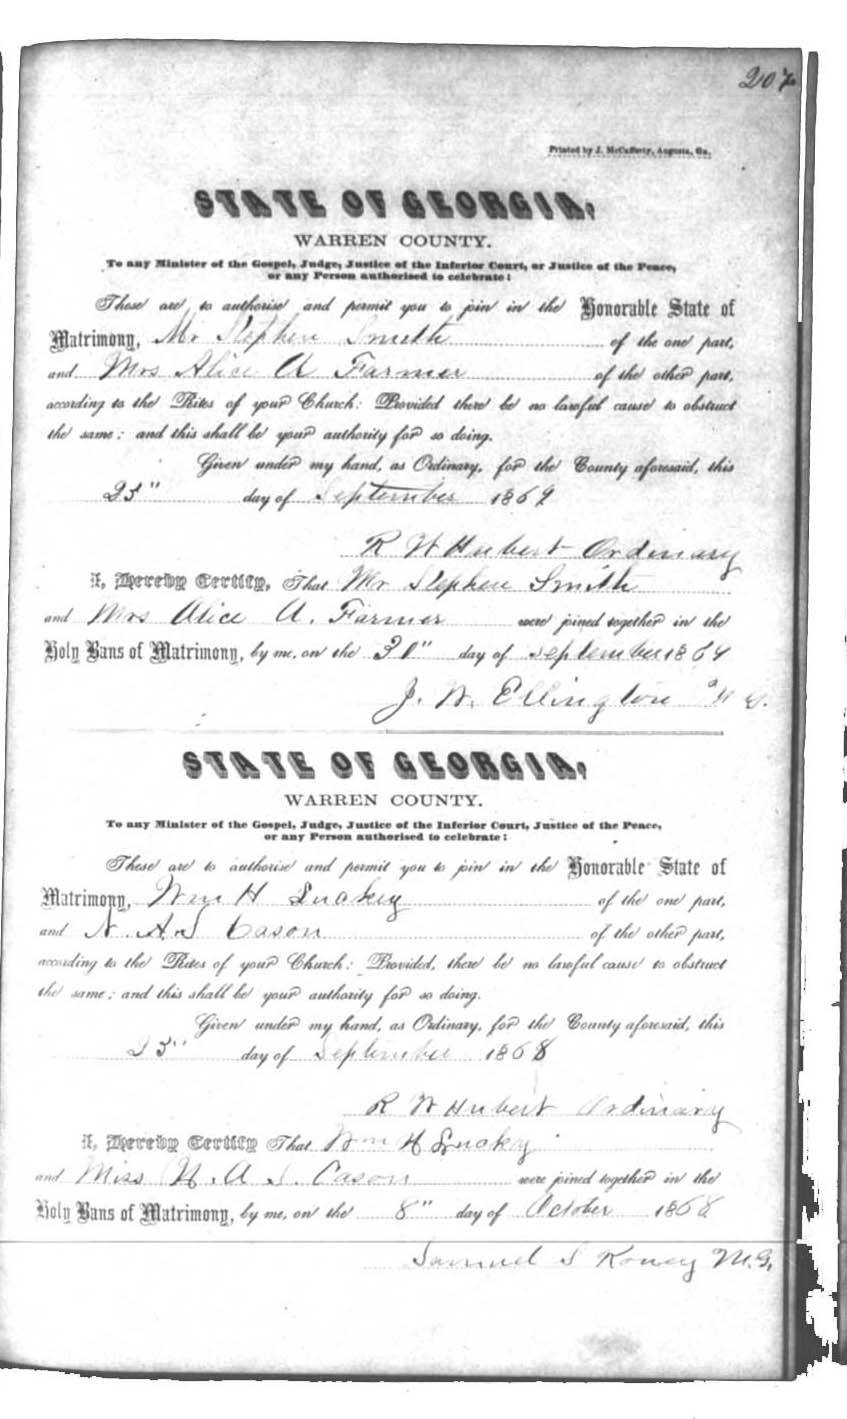 207
Printed by J. McCafferty, Augusta, Ga.
STATE OF GEORGIA,
WARREN COUNTY.
To any Minister of the Gospel, Judge, Justice of the Inferior Court, or Justice of the Peace,
or any Person authorised to celebrate:
These are to authorise and permit you to join in the Honorable State of
Matrimony, Mr Stephen Smith of the one part,
and Mrs Alice A Farmer of the other part,
according to the Rites of your Church: Provided there be no lawful cause to obstruct
the same; and this shall be your authority for so doing.
Given under my hand, as Ordinary, for the County aforesaid, this
25" day of September 1869
R W Hubert Ordinary
I, Hereby Certify, That Mr Stephen Smith
and Mrs Alice A. Farmer were joined together in the
Holy Bans of Matrimony, by me, on the 30" day of September 1869
J. W. Ellington
STATE OF GEORGIA,
WARREN COUNTY.
To any Minister of the Gospel, Judge, Justice of the Inferior Court, Justice of the Peace,
or any Person authorised to celebrate:
These are to authorise and permit you to join in the Honorable State of
Matrimony, Wm H Luckey of the one part,
and N. A. S Cason of the other part,
according to the Rites of your Church: Provided, there be no lawful cause to obstruct
the same; and this shall be your authority for so doing.
Given under my hand, as Ordinary, for the County aforesaid, this
25" day of September 1868
R W Hubert Ordinary
I, Hereby Certify That Wm H Luckey
and Miss N. A. S. Cason were joined together in the
Holy Bans of Matrimony, by me, on the 8" day of October 1868
Samuel S M.G.